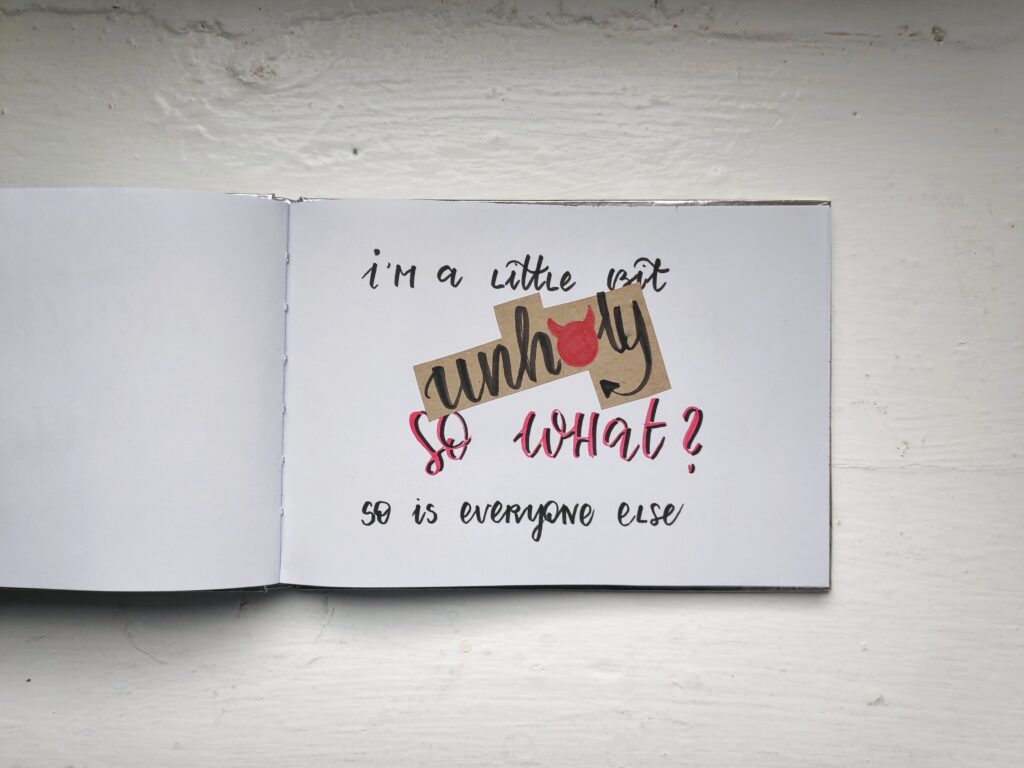 i'm a little bit
unholy
so what?
so is everyone else